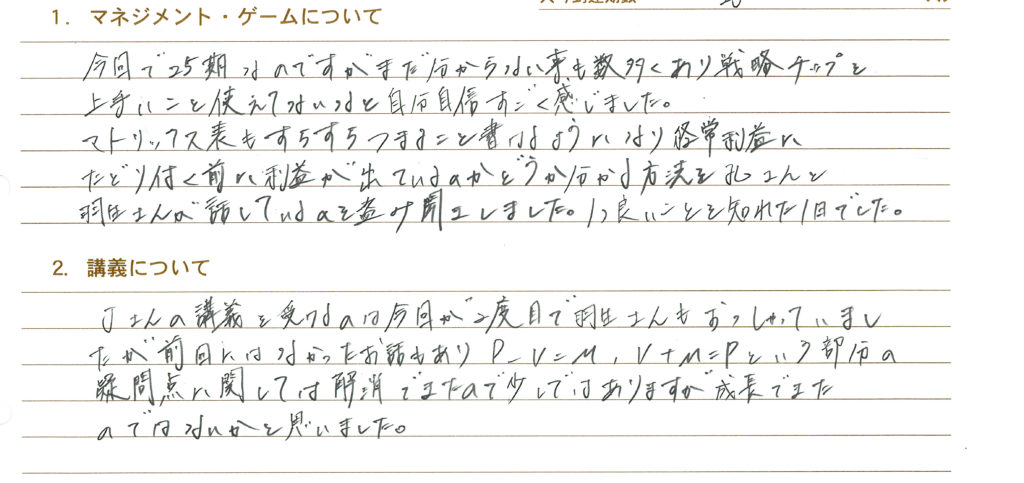 1. マネジメント・ゲームについて
今回で25期なのですがまだ分からない事も数多くあり戦略チップを
上手いこと使えてないなと自分自信すごく感じました。
マトリックス表もすらすらつまること書けるようになり経常利益に
たどり付く前に利益が出ているのかどうか分かる方法を孔さんと
羽生さんが話しているのを盗み聞きしました。1つ良いことを知れた1日でした。
2. 講義について
Jさんの講義を受けるのは今回が2度目で羽生さんもおっしゃっていまし
たが前回にはなかったお話もあり P-V=M、V+M=Pという部分の
疑問点に関しては解消できたので少しではありますが成長できた
のではないかと思いました。